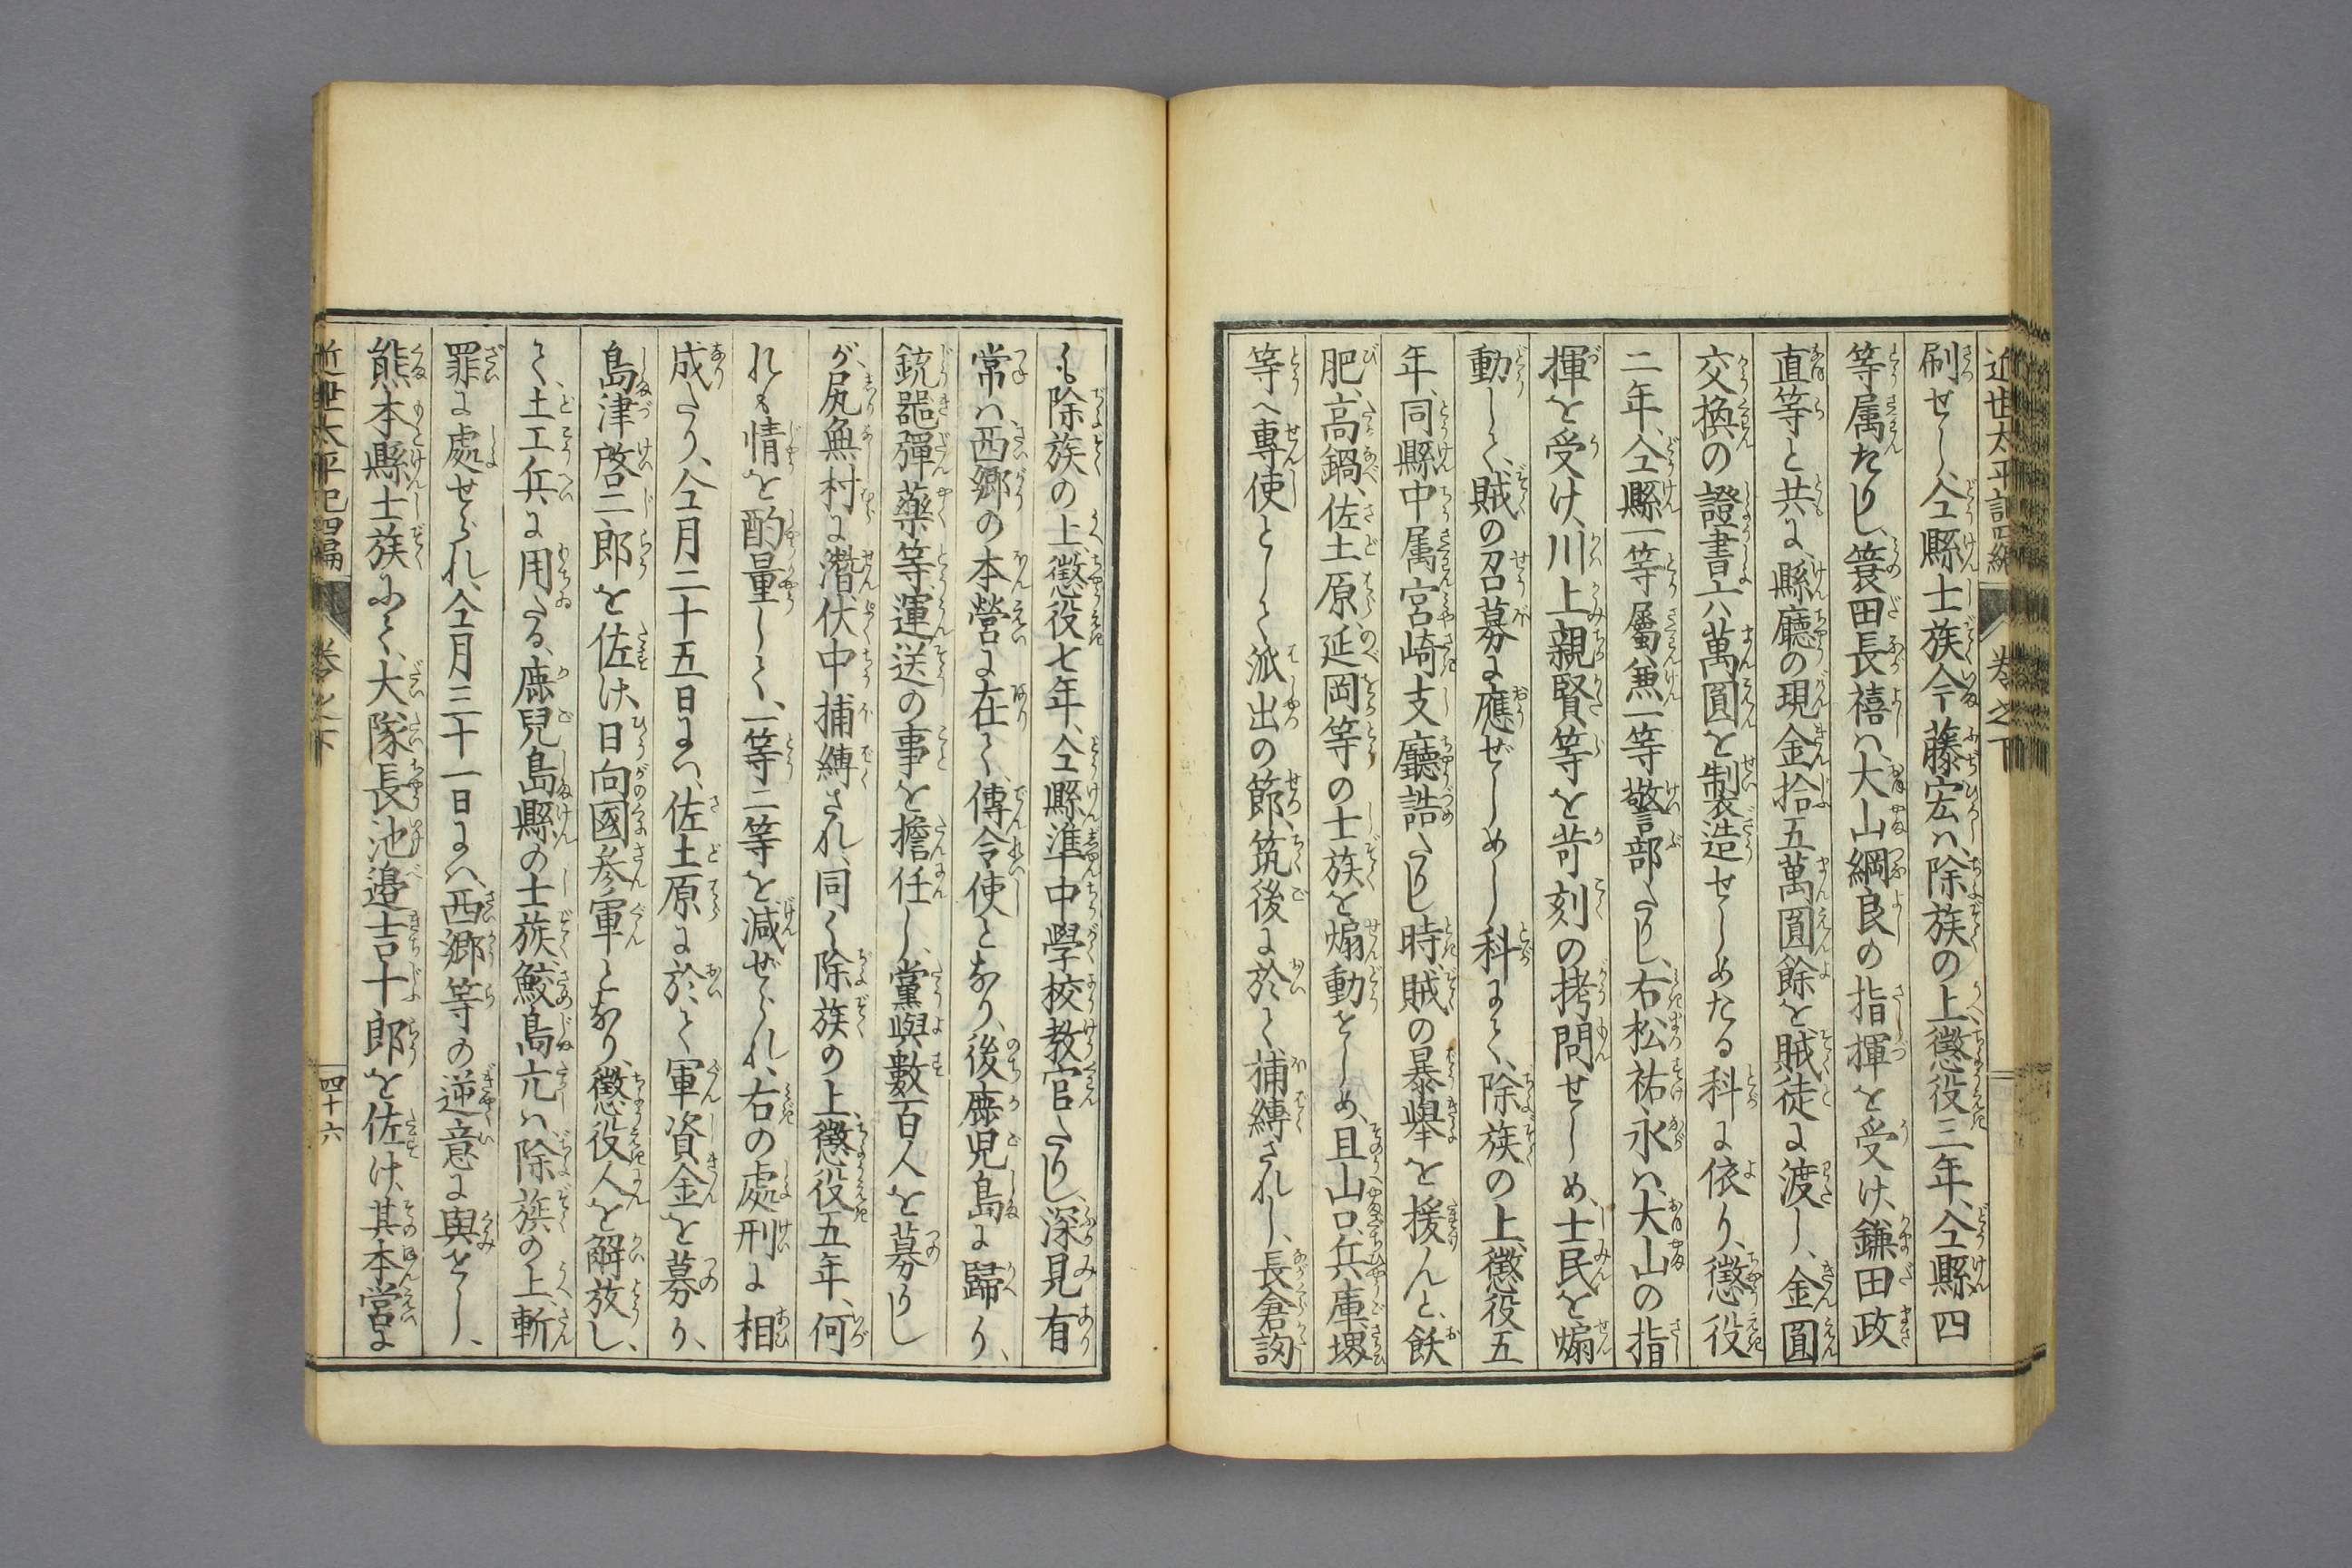 近世太平記四編　卷之下
刷せし、仝縣士族今藤宏ハ、除族の上懲役三年、仝縣四
等属たりし、簑田長禧ハ、大山綱良の指揮を受け、鎌田政
直等と共に、縣廳の現金拾五萬圓餘を賊徒に渡し、金圓
交換の證書六萬圓を製造せしめたる科に依り、懲役
二年、仝縣一等屬兼一等警部たりし、右松祐永ハ、大山の指
揮を受け、川上親賢等を苛刻の拷問せしめ、士民を煽
動して、賊の召募に應ぜしめし科にて、除族の上、懲役五
年、同縣中属宮崎支廳詰たりし時、賊の暴擧を援んと、飫
肥、高鍋、佐土原、延岡等の士族を煽動をしめ、且山口、兵庫、堺
等へ專使として派出の節、筑後に於て、捕縛されし、長倉訒
も、除族の上、懲役七年、仝縣準中學校教官たりし、深見有
常ハ、西郷の本營に在て、傳令使となり、後鹿児島に歸り、
銃器彈藥等、運送の事を擔任し、黨與數百人を募りし
が、尻無村に潜伏中捕縛され、同く除族の上、懲役五年、何
れも情を酌量して、一等二等を減ぜられ、右の處刑に相
成たり、仝月二十五日にハ、佐土原に於て軍資金を募り、
島津啓二郎を佐け、日向國参軍となり、懲役人を解放し、
て、土工兵に用たる、鹿兒島縣の士族鮫島亢ハ除族の上、斬
罪に處せられ、仝月三十一日にハ、西郷等の逆意に與をし、
熊本縣士族にて、大隊長池邉吉十郎を佐け、其本営に
近世太平記四編　卷之下　四十六